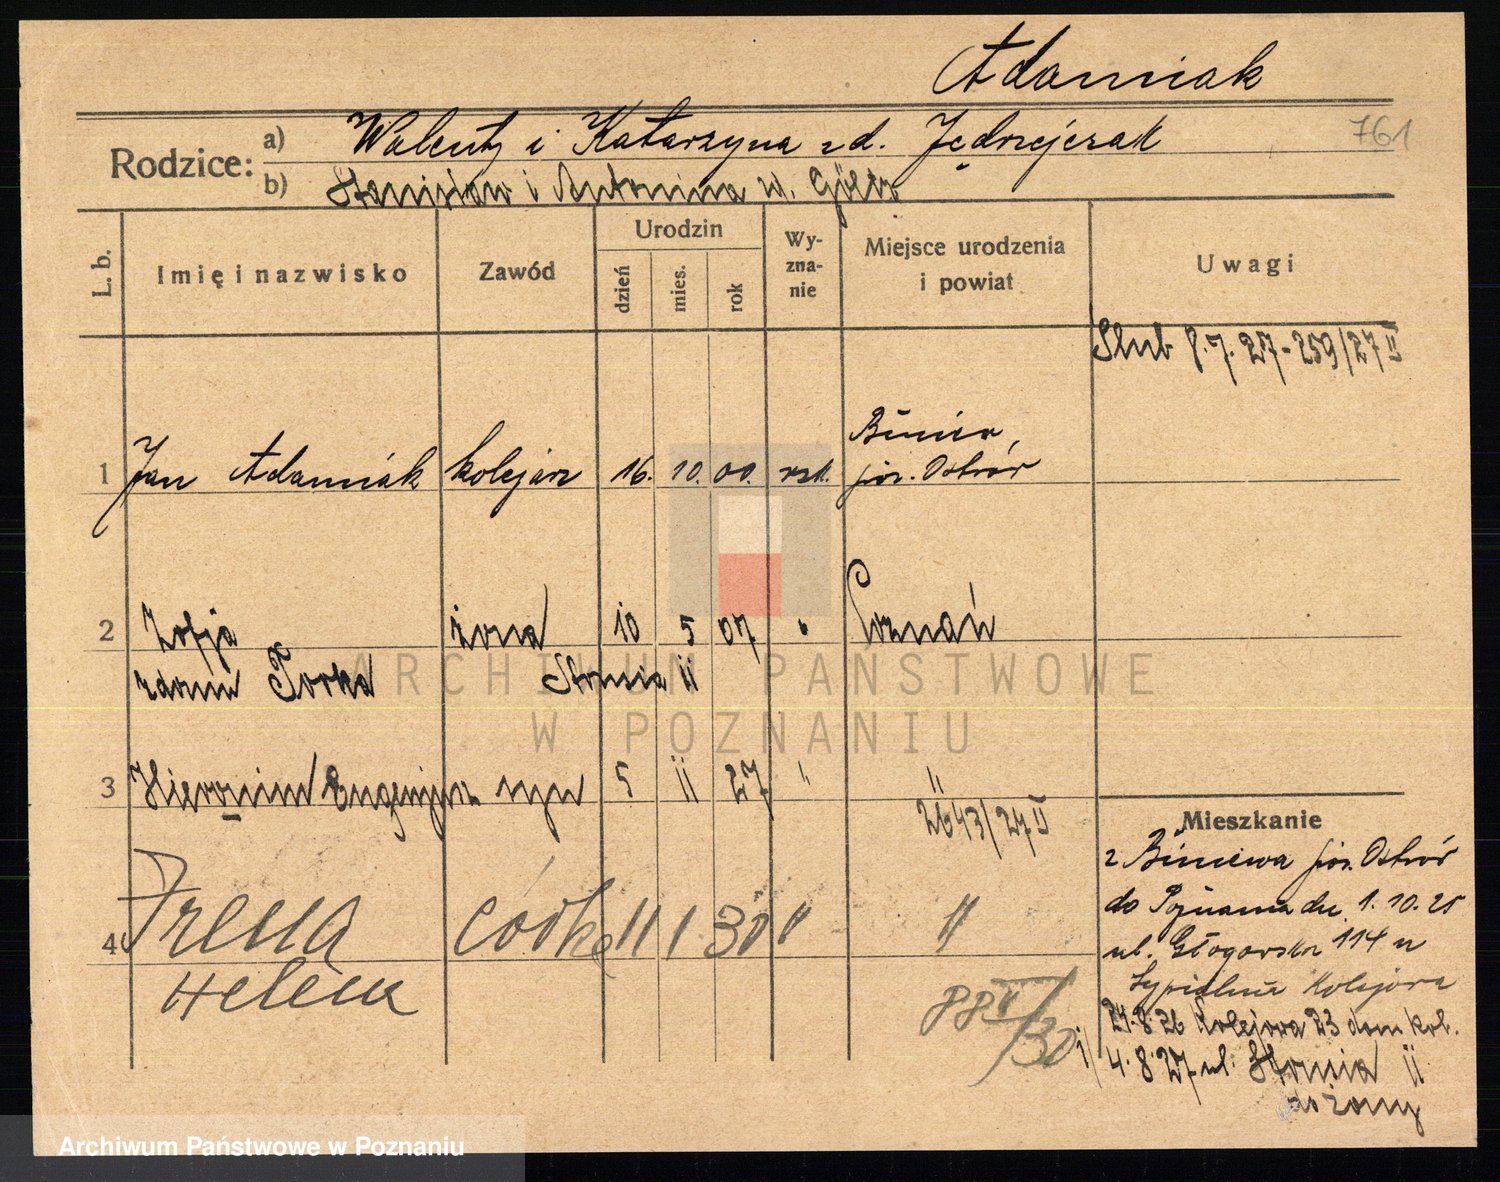 Adamiak
761
Rodzice:
a) Walenty i Katarzyna zd. Jędrzejczak
b) Stanisław i Antonina zd.
L. b.
Imię i nazwisko
Zawód
Urodzin
dzień
mies.
rok
Wy-
zna-
nie
Miejsce urodzenia
i powiat
Uwagi
Ślub 8.7.27 - 259/27 II
1 Jan Adamiak kolejarz 16. 10. 00. rzk. Biniew,
pow. Ostrów
2 Zofja żona 10 5 07 " Poznań
zdomu Torka 11
3 Hieronim Eugenjusz syn 5 11 27 " "
2643/27 II
4 Irena córka 11 1 30 " "
Helena
88 II/30
Mieszkanie
z Biniewa pow. Ostrów
do Poznania dn. 1.10.25
ul. Głogowska 114 u
Kolejowa
24.8.26 Kolejowa 23 dom kol.
4.8.27 ul. 11
do żony
ARCHIWUM PAŃSTWOWE
W POZNANIU
Archiwum Państwowe w Poznaniu